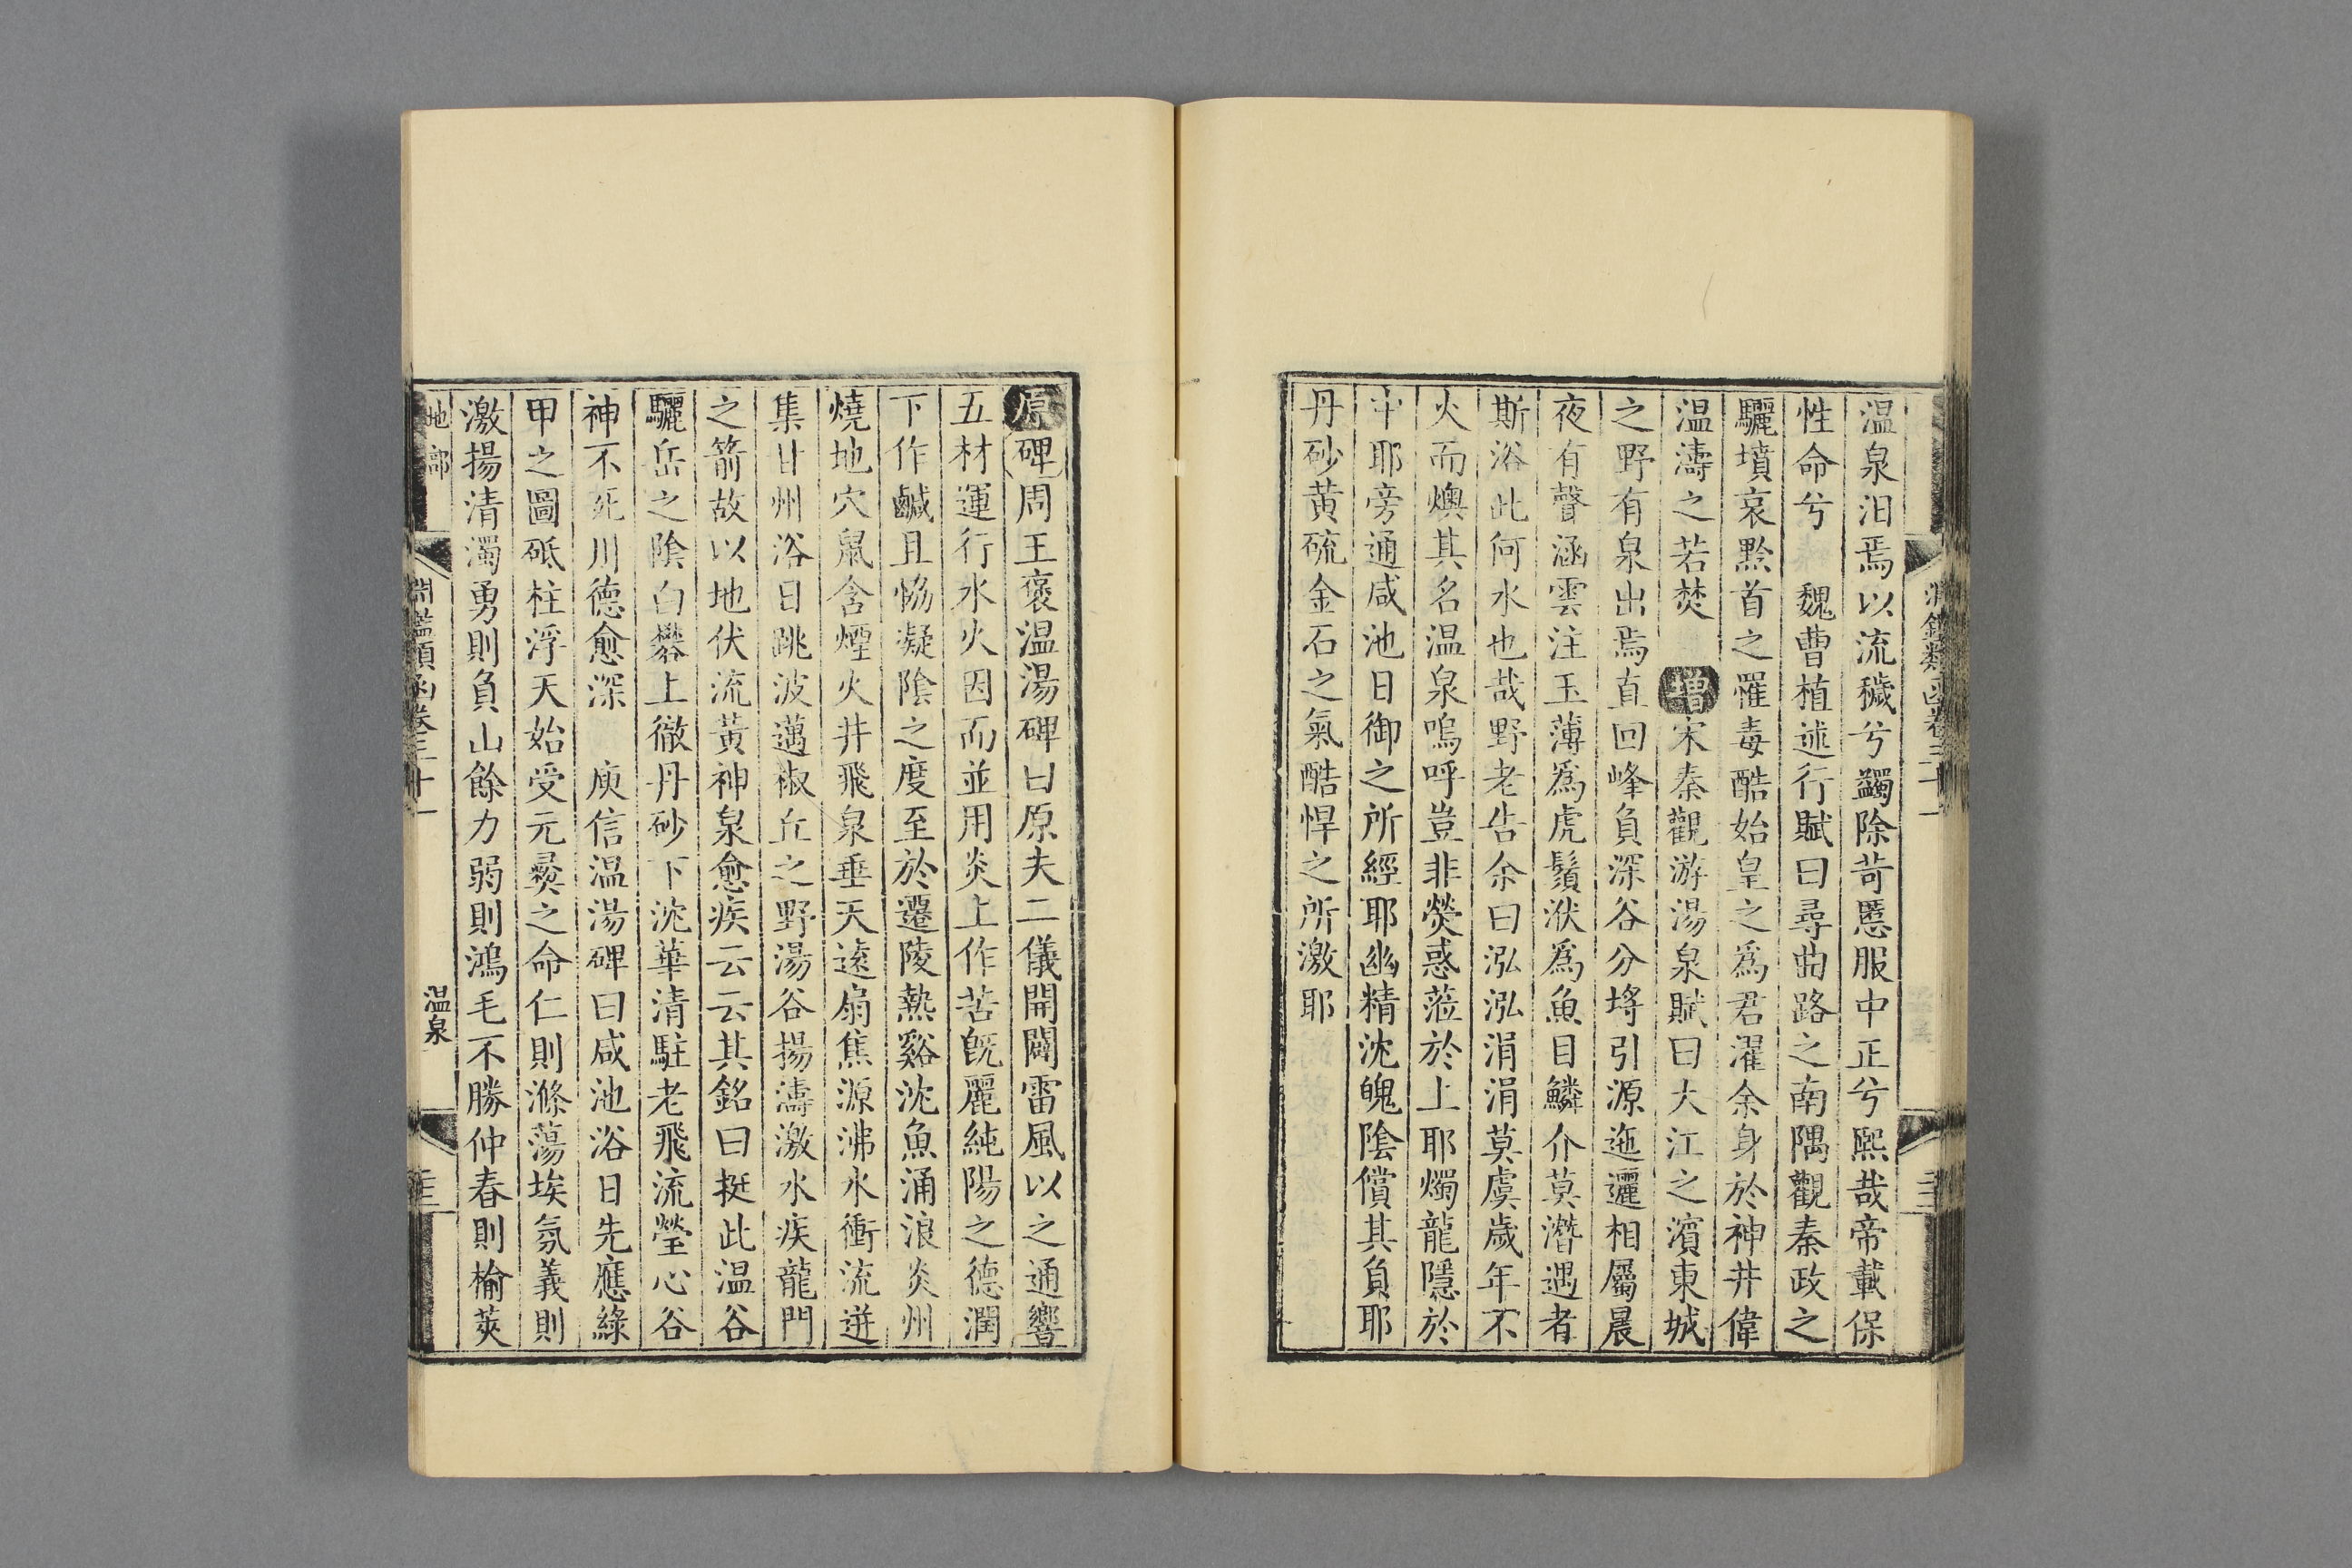 温泉汨焉以流穢兮蠲除苛慝服中正兮熙哉帝載保
性命兮　魏曹植述行賦曰尋曲路之南隅觀秦政之
驪墳哀黔首之罹毒酷始皇之爲君濯余身於神井偉
温濤之若焚　增宋秦觀游湯泉賦曰大江之濱東城
之野有泉出焉直回峰負深谷分埓引源迤邐相屬晨
夜有聲涵雲注玉薄爲虎鬚洑爲魚目鱗介莫潛遇者
斯浴此何水也哉野老告余曰泓泓涓涓莫虞歲年不
火而燠其名温泉嗚呼豈非熒惑蒞於上耶燭龍隱於
中耶旁通咸池日御之所經耶幽精沈魄陰償其負耶
丹砂黄硫金石之氣酷悍之所激耶
原碑周王褒温湯碑曰原夫二儀開闢雷風以之通響
五材運行水火因而並用炎上作苦旣麗純陽之德潤
下作鹹且恊凝陰之度至於遷陵熱谿沈魚涌浪炎州
燒地穴鼠含煙火井飛泉垂天遠扇焦源沸水衝流迸
集甘州浴日跳波邁椒丘之野湯谷揚濤激水疾龍門
之箭故以地伏流黄神泉愈疾云云其銘曰挺此温谷
驪岳之陰白礬上徹丹砂下沈華清駐老飛流瑩心谷
神不死川德愈深　庾信温湯碑曰咸池浴日先應綠
甲之圖砥柱浮天始受元彛之命仁則滌蕩埃氛義則
激揚清濁勇則負山餘力弱則鴻毛不勝仲春則榆莢
地部
淵鑑類函卷三十一
温泉